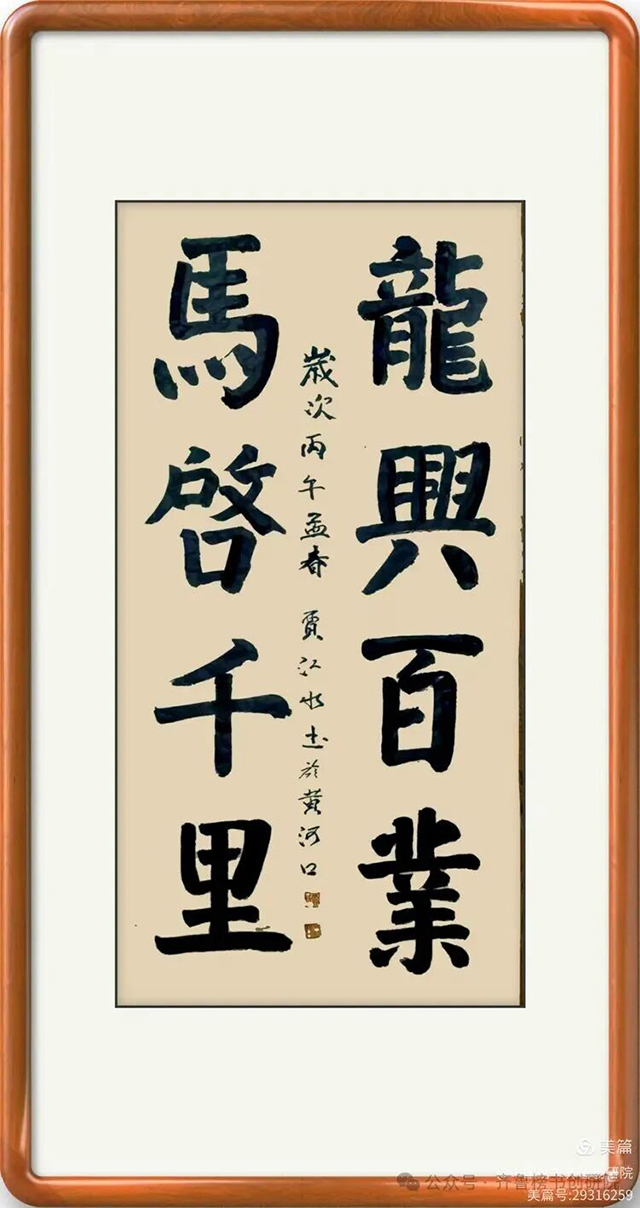 龍興百業
歲次丙午孟春 賈江水書於黃河口
馬啓千里
美篇
公众号·齐鲁榜书创研院
美篇号:29316259